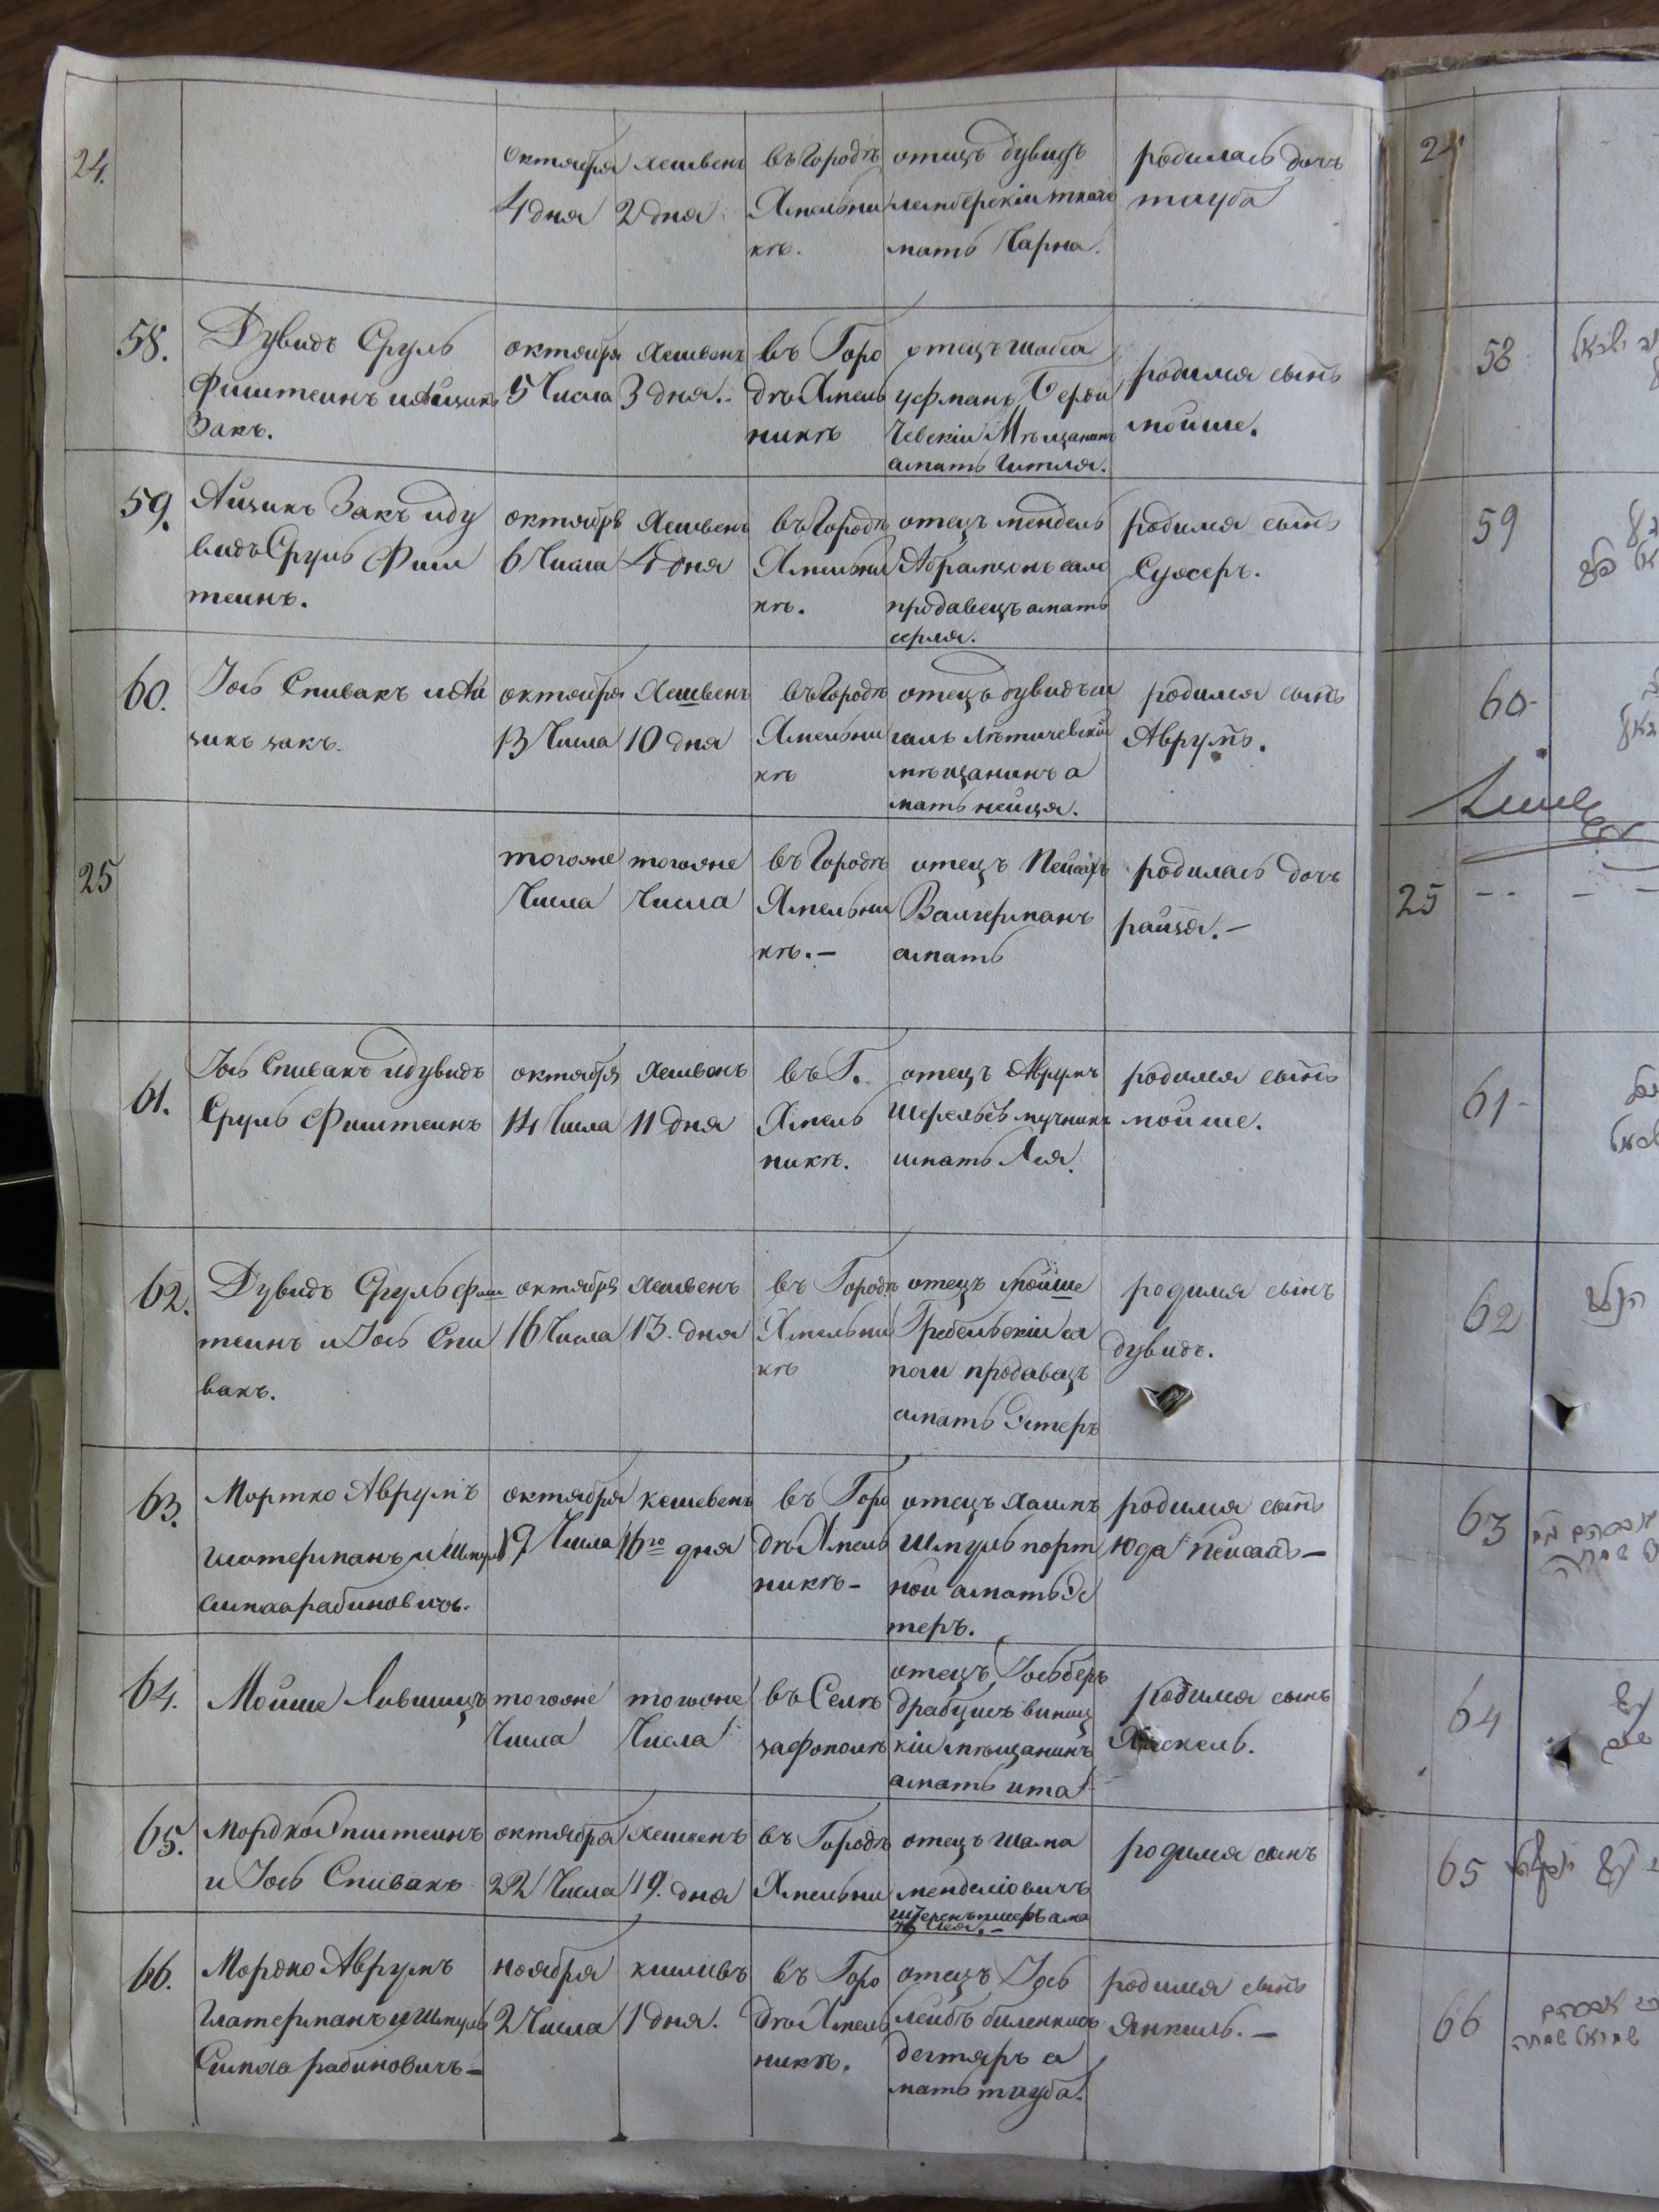 24.
октября
4 дня
хешвенъ
2 дня
въ Городѣ
Хмельни
кѣ.
отецъ дувидъ
лемберскій ткачъ
мать Чарна.
родилась дочь
тауба
58.
Дувидъ Сруль
Фиштеинъ и Айцикъ
Закъ.
октября
5 Числа
Хешвенъ
3 дня.
въ Горо
дѣ Хмель
никѣ
отецъ шабса
уфманъ Берди
чевскіи Мѣщанинъ
а мать Гитля.
родился сынъ
мойше.
59.
Айзикъ Закъ и ду
видъ Сруль Фиш
теинъ.
октября
6 Числа
Хешвенъ
4 дня
въ Городѣ
Хмельни
кѣ.
отецъ мендель
Абрамзонъ сало
продавецъ а мать
серля.
родился сынъ
Сухеръ.
60.
Іось Спивакъ и Аи
зикъ закъ.
октября
13 Числа
Хешвенъ
10 дня
въ Городѣ
Хмельни
кѣ
отецъ дувидъ си
галъ Лѣтичевскій
мѣщанинъ а
мать неища.
родился сынъ
Аврумъ.
25
тогоже
Числа
тогоже
Числа
въ Городѣ
Хмельни
кѣ.-
отецъ Пейсахъ
Валгерманъ
а мать
родилась дочь
райзя.-
61.
Іось Спивакъ и дувидъ
Сруль Фиштеинъ
октября
14 Числа
Хешвенъ
11 дня
въ Г.
Хмель
никѣ.
отецъ Аврумъ
мучникъ
и мать Лея.
родился сынъ
мойше.
62.
Дувидъ Сруль Фиш
теинъ и Іось Спи
вакъ.
октября
16 Числа
хешвенъ
13. дня
въ Городѣ
Хмельни
кѣ
отецъ мойше
Гребельскіи са
поги продавацъ
а мать Эстеръ
родился сынъ
дувидъ.
63.
Мортко Аврумъ
Глатерманъ и Шмуль
Симхарабиновичъ.
октября
19 Числа
кешевенъ
16го дня
въ Горо
дѣ Хмель
никѣ-
отецъ хаимъ
Шмуль порт
ной а мать Эс
теръ.
родился сынъ
Юда Пейсахъ-
64.
Мойше Лившицъ
тогоже
Числа
тогоже
Числа
въ Селѣ
зафополѣ
отецъ Іосьберъ
винниц
кіи мѣщанинъ
а мать ита
родился сынъ
Хаскель.
65.
Мордко Эпштеинъ
и Іось Спивакъ
октября
22 Числа
хешвенъ
19. дня
въ Городѣ
Хмельни
отецъ шама
менделіовичъ
родился сынъ
66.
Мордко Аврумъ
Глатерманъ и Шмуль
Симха рабиновичъ-
ноября
2 Числа
кислевъ
1 дня.
въ Горо
дѣ Хмель
никѣ.
отецъ Іось
лейбъ биленкисъ
дегтяръ а
мать тауба.
родился сынъ
Янкель.-
24
58
59
60-
25
61-
62
63
64
65
66